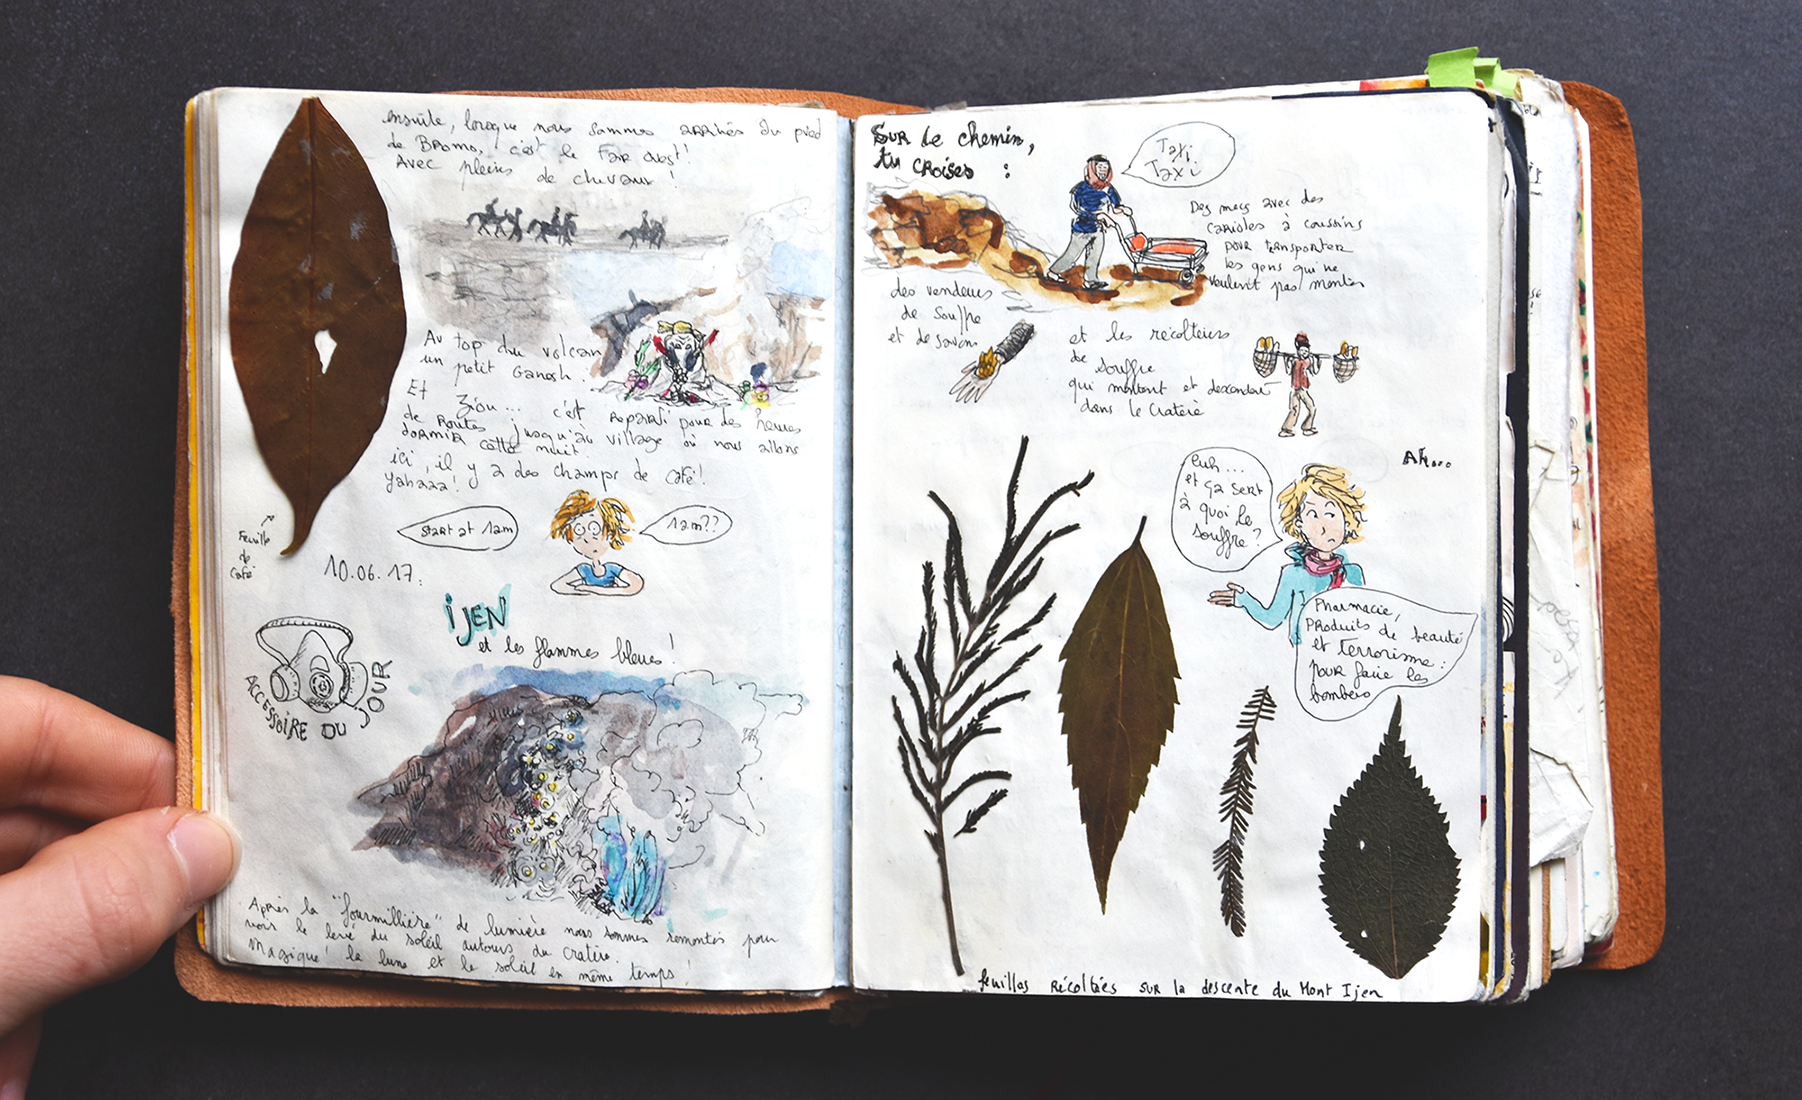 ensuite, lorsque nous sommes arrivés au pied
de Bromo, c'est le Far Ouest!
Avec pleins de chevaux !
Au top du volcan
un petit Ganesh.
Et Ziou... c'est reparti pour des heures
de routes jusqu'au village où nous allons
dormir cette nuit.
ici, il y a des champs de café!
yahaaa!
Feuille
de
Café
start at 1am
1am??
10.06.17:
IJEN
et les flammes bleues !
ACCESSOIRE DU JOUR
Après la "fourmillière" de lumière nous sommes remontés pour
voir le levé du soleil autours du cratère.
Magique! la lune et le soleil en même temps!
Sur le chemin,
tu croises :
Taxi
Taxi
Des mecs avec des
carioles à coussins
pour transporter
les gens qui ne
veulent pas monter
des vendeurs
de souffre
et de savons
et les récolteurs
de
souffre
qui montent et descendent
dans le cratère
Ah...
Euh...
et ça sert
à quoi le
souffre?
Pharmacie,
produits de beauté
et terrorisme:
pour faire les
bombes
feuilles récoltées sur la descente du Mont Ijen